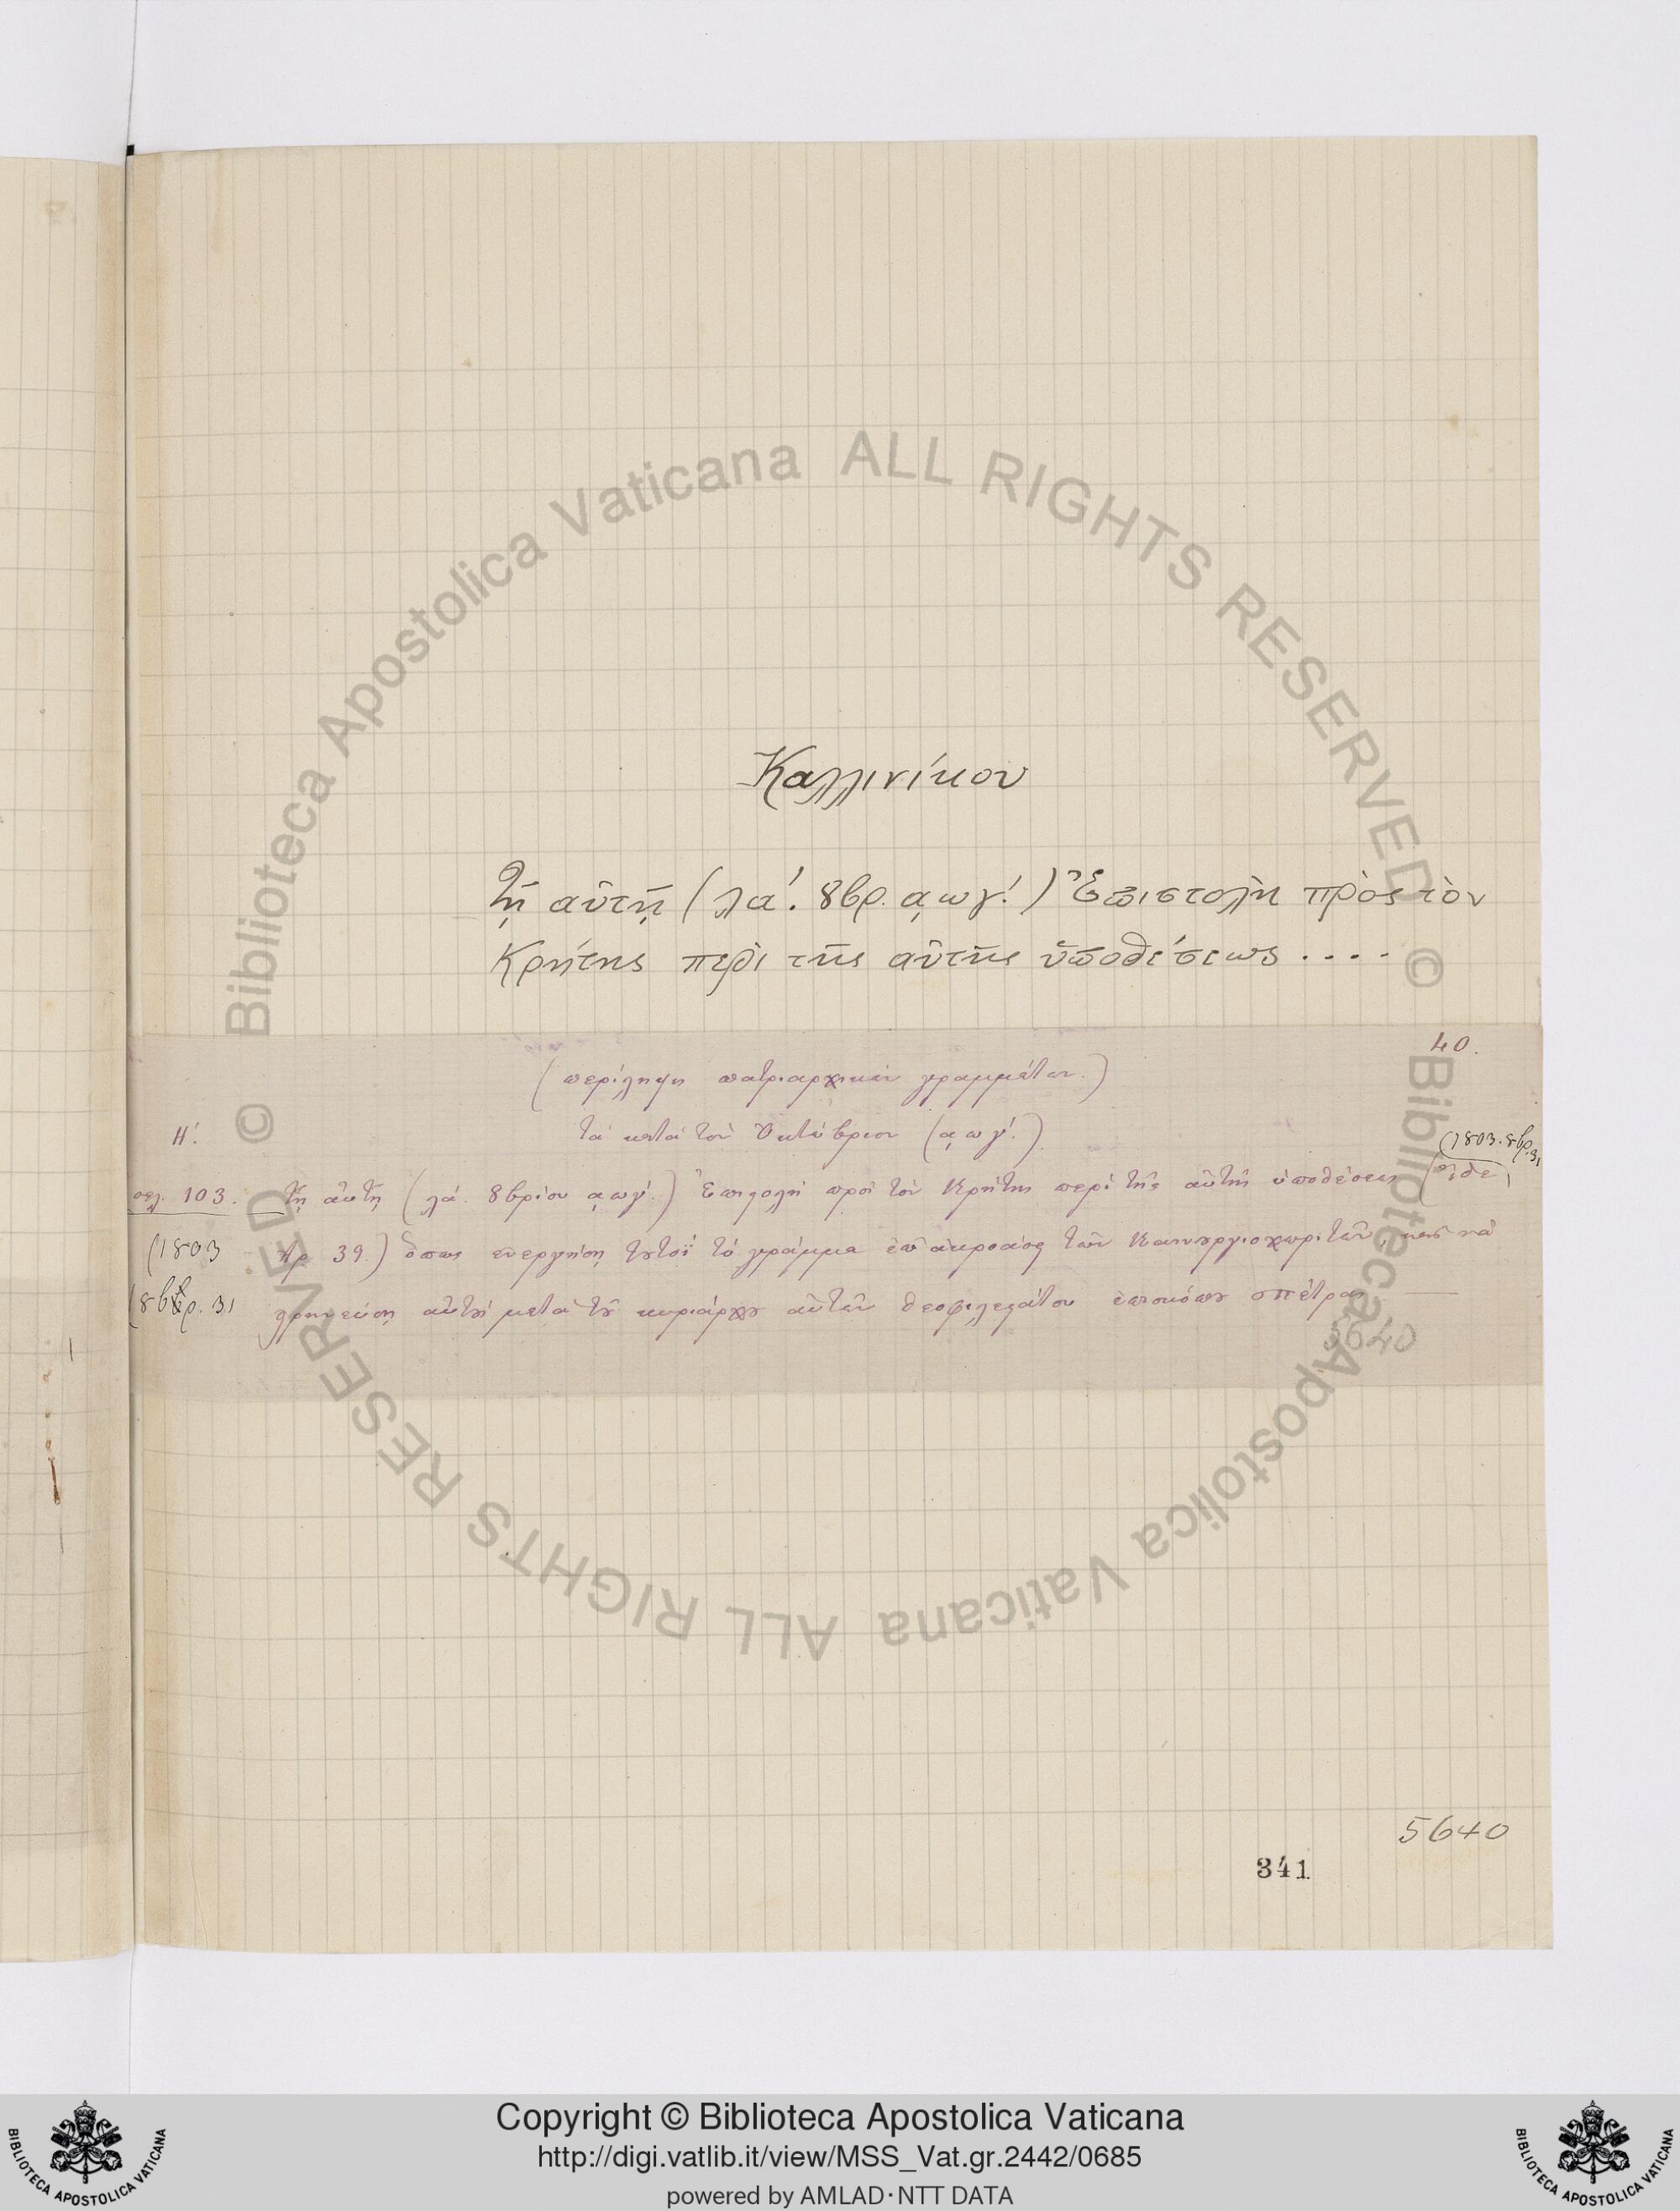 Καλλινίκου
Τῇ αὐτῇ (λα΄. 8βρ. αωγ΄.) Ἐπιστολὴ πρὸς τὸν
Κρήτης περὶ τῆς αὐτῆς ὑποθέσεως ....
40.
(περίληψη πατριαρχικῶν γραμμάτων.)
Η΄. τὰ κατὰ τὸν Ὀκτώβριον (αωγ΄.)
(1803. 8βρ. 31
σελ. 103. Τῇ αὐτῇ (λα΄. 8βρίου αωγ΄.) Ἐπιστολὴ πρὸς τὸν Κρήτης περὶ τῆς αὐτῆς ὑποθέσεως (ἴδε
(1803 Ἀρ 39.) ὅπως ἐνεργήσῃ τὸ γράμμα ἐπ' ἀκροάσει τῶν Καινουργιοχωριτῶν, καὶ νὰ
(8βρ. 31 εἰρηνεύσῃ αὐτοὺς μετὰ τοῦ κυριάρχου αὐτῶν θεοφιλεστάτου ἐπισκόπου Πέτρας —
5640
5640
341
Biblioteca Apostolica Vaticana ALL RIGHTS RESERVED ©
Biblioteca Apostolica Vaticana ALL RIGHTS RESERVED ©
BIBLIOTECA APOSTOLICA VATICANA
Copyright © Biblioteca Apostolica Vaticana
http://digi.vatlib.it/view/MSS_Vat.gr.2442/0685
powered by AMLAD·NTT DATA
BIBLIOTECA APOSTOLICA VATICANA